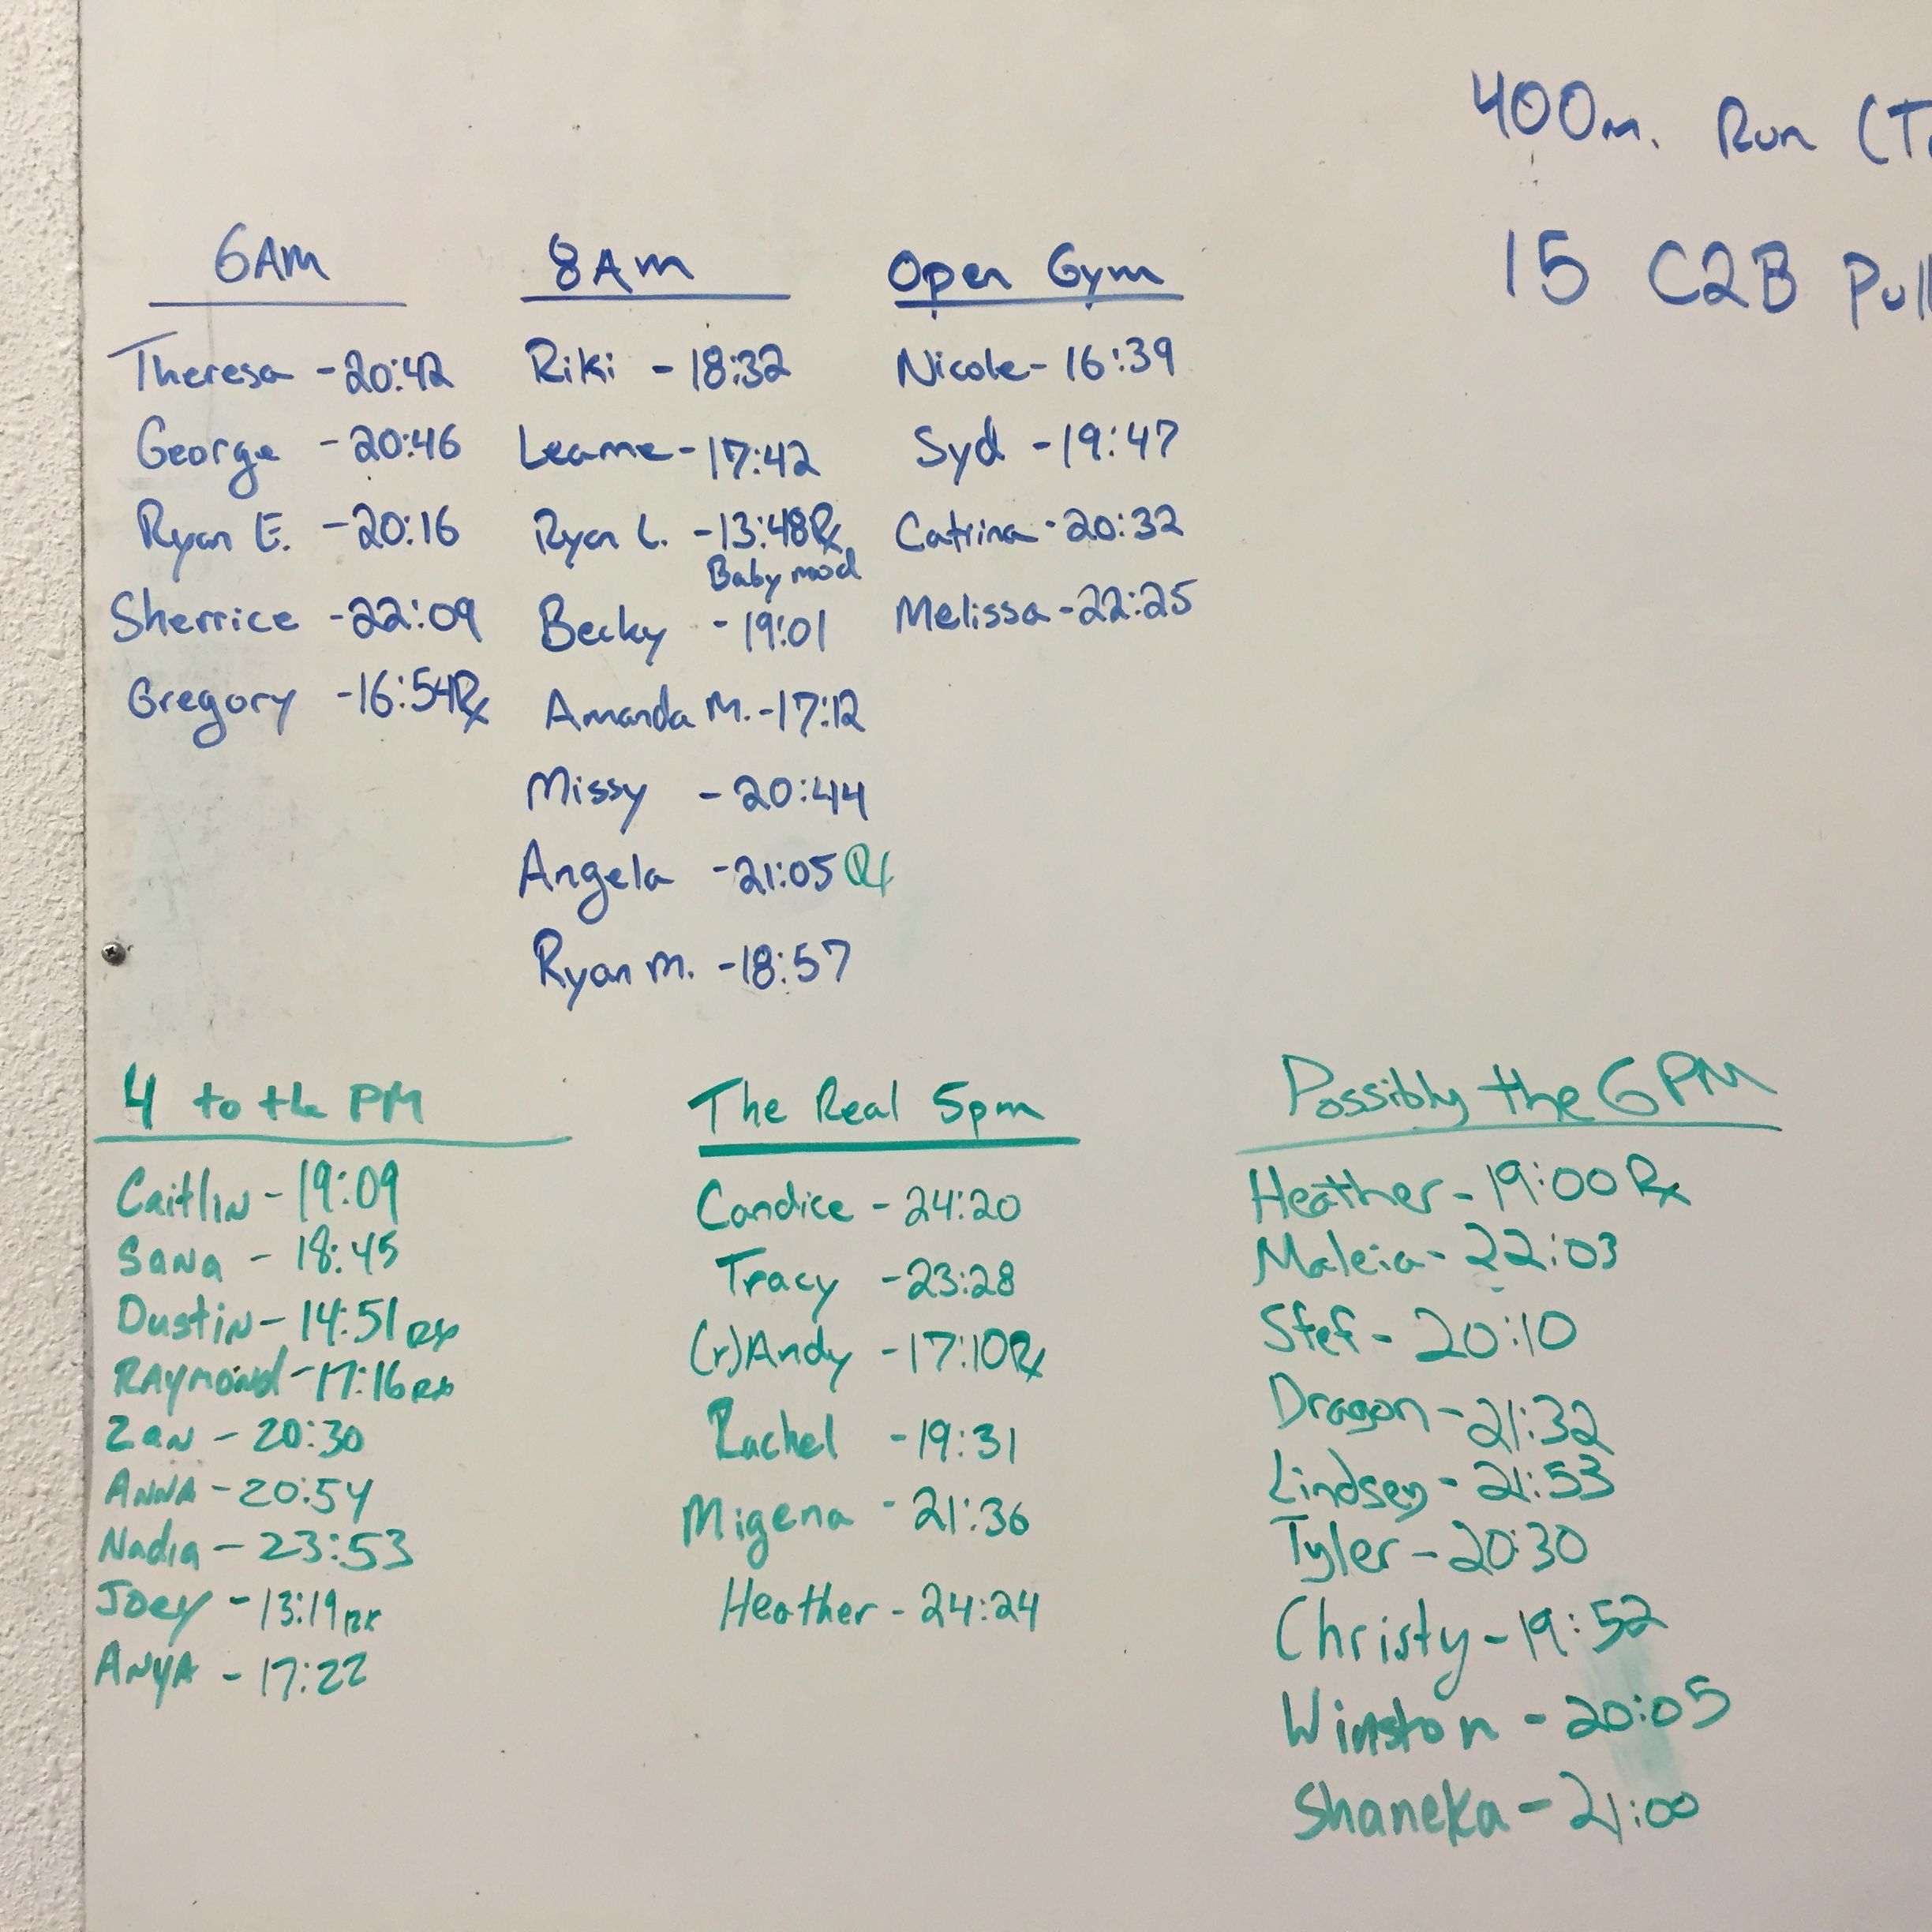 400m. Run (T
15 C2B Pull
6AM
Theresa - 20:42
George - 20:46
Ryan E. - 20:16
Sherrice - 22:09
Gregory - 16:54 Rx
8AM
Riki - 18:32
Leanne - 17:42
Ryan L. - 13:48 Rx
Baby mod
Becky - 19:01
Amanda M. - 17:12
Missy - 20:44
Angela - 21:05 Rx
Ryan M. - 18:57
Open Gym
Nicole - 16:39
Syd - 19:47
Catrina - 20:32
Melissa - 22:25
4 to the PM
Caitlin - 19:09
Sana - 18:45
Dustin - 14:51 RX
Raymond - 17:16 RX
Zan - 20:30
Anna - 20:54
Nadia - 23:53
Joey - 13:19 RX
Anya - 17:22
The Real 5pm
Candice - 24:20
Tracy - 23:28
(r)Andy - 17:10 Rx
Rachel - 19:31
Migena - 21:36
Heather - 24:24
Possibly the 6PM
Heather - 19:00 Rx
Maleia - 22:03
Stef - 20:10
Dragon - 21:32
Lindsey - 21:53
Tyler - 20:30
Christy - 19:52
Winston - 20:05
Shaneka - 21:00